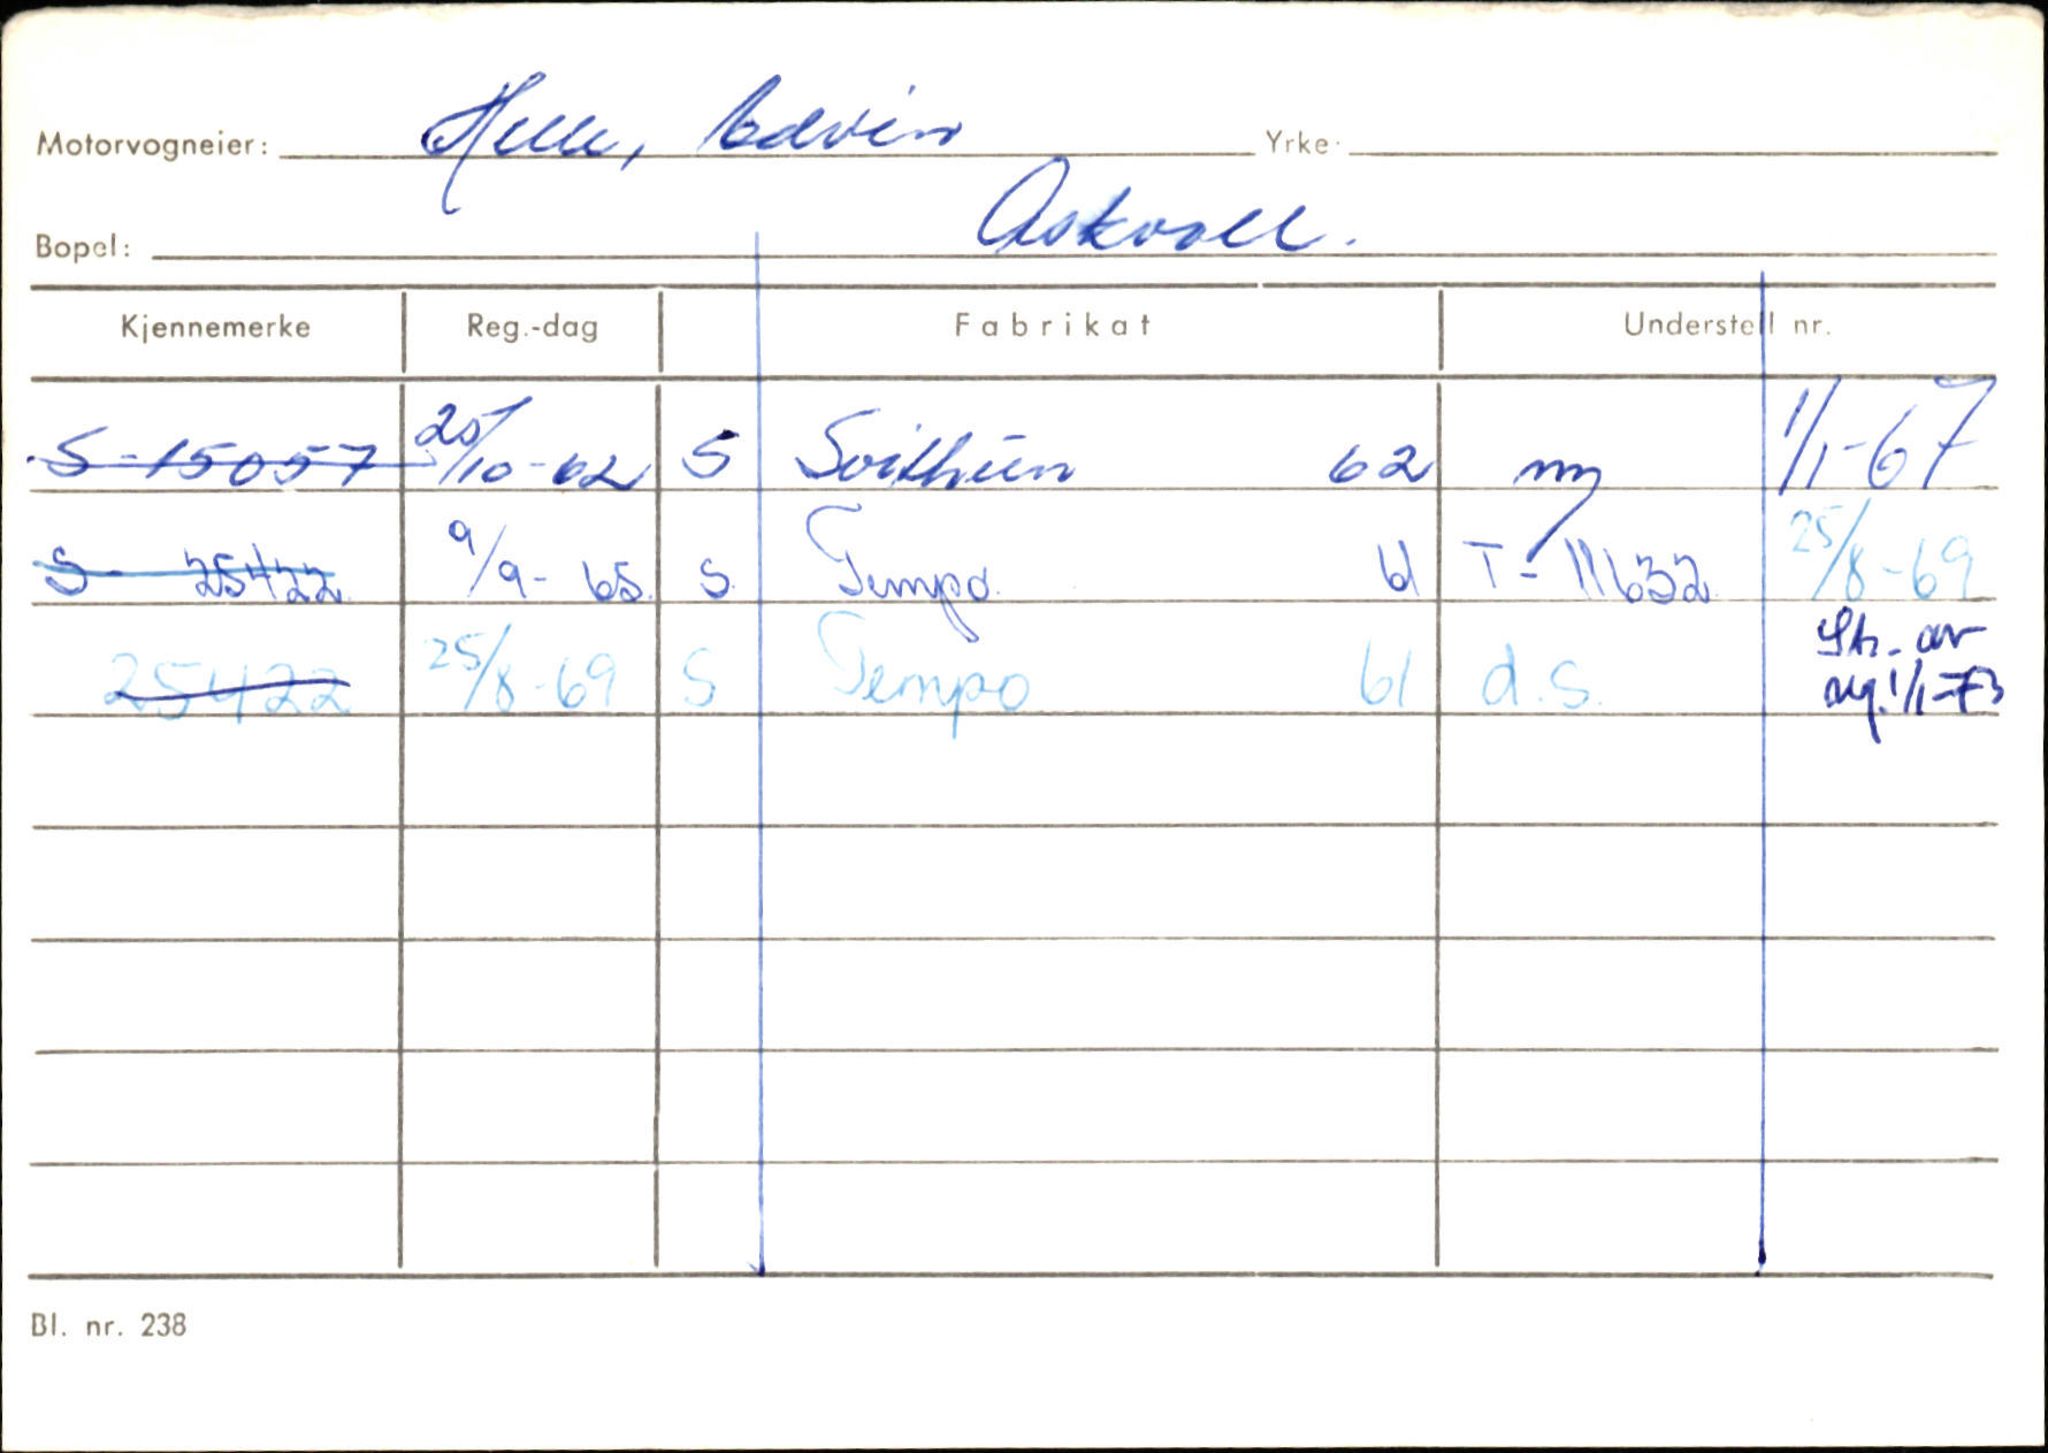 Motorvogneier: Helle, Edvin Yrke:
Bopel: Askvoll.
Kjennemerke Reg.-dag Fabrikat Understell nr.
S-15057 25/10-62 S Svithun 62 ny 1/1-67
S- 25422 9/9-65. S. Tempo. 61 T-11632 25/8-69
25422 25/8-69 S Tempo 61 d.s. Str. av
reg. 1/1-73
Bl. nr. 238